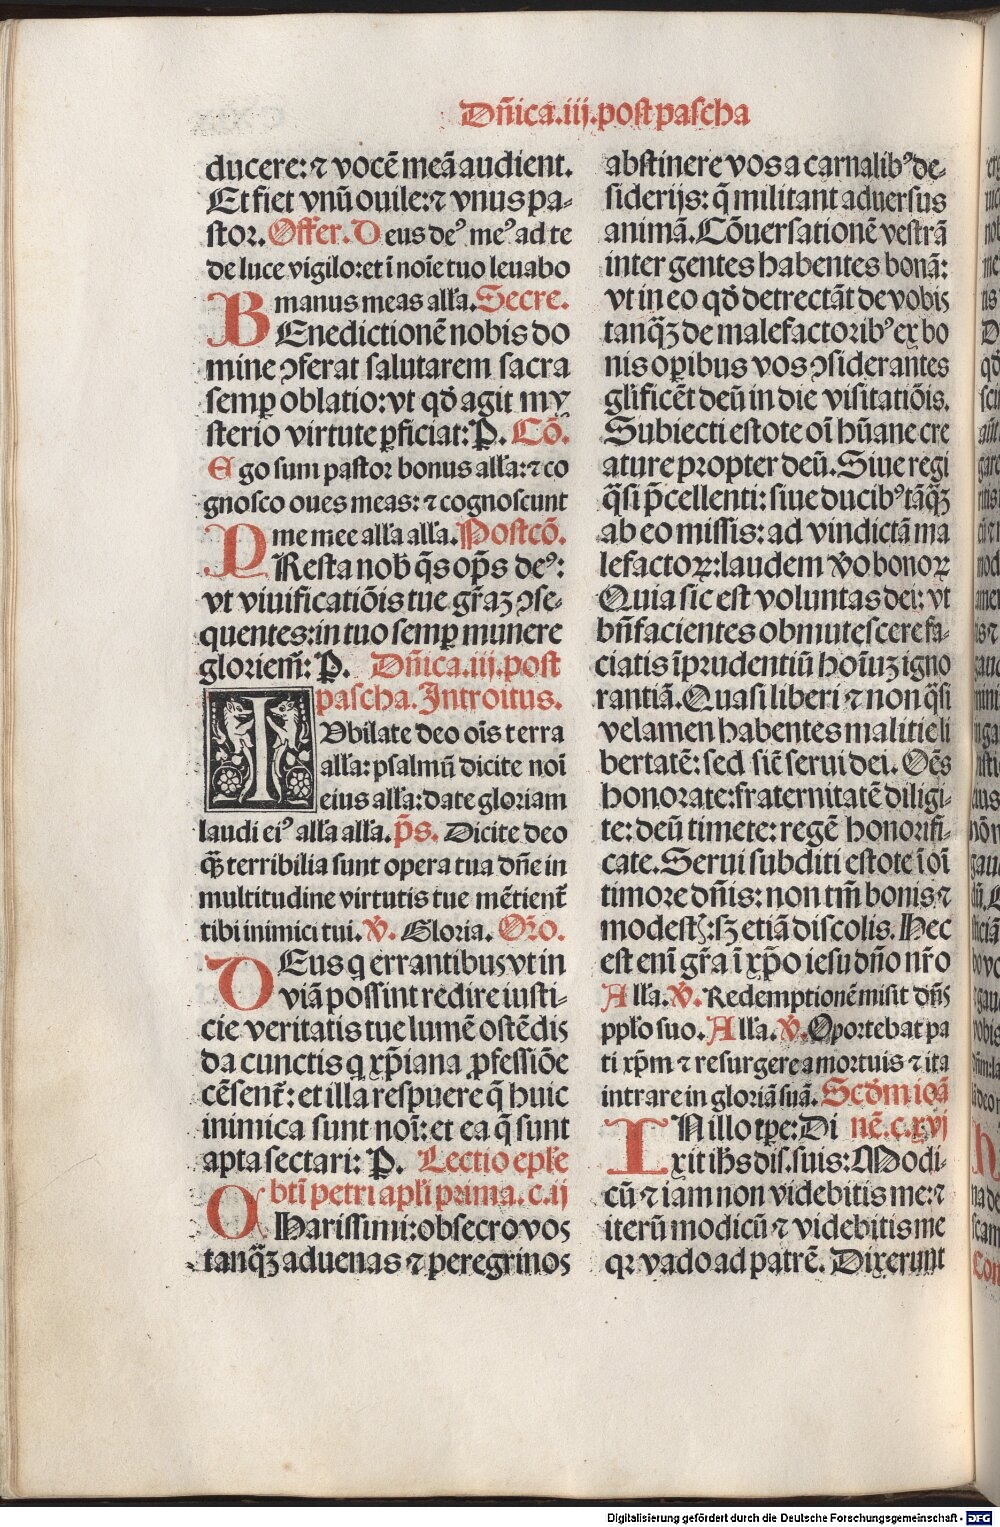 Dñica.iij.post pascha
ducere: ⁊ vocē meā audient.
Et fiet vnū ouile: ⁊ vnus pa-
stor. Offer. Deus deꝰ meꝰ ad te
de luce vigilo: et ī noīe tuo leuabo
manus meas alľa. Secre.
BEnedictionē nobis do
mine ꝯferat salutarem sacra
semꝑ oblatio: vt qđ agit my
sterio virtute ꝑficiat: P. Cō.
Ego sum pastor bonus alľa: ⁊ co
gnosco oues meas: ⁊ cognoscunt
me mee alľa alľa. Postcō.
PResta nob̄ q̄s op̄s deꝰ:
vt viuificatiōis tue gr̄aʒ ꝯse-
quentes: in tuo semꝑ munere
gloriem̄: P. Dñica.iij.post
pascha. Introitus.
IVbilate deo oīs terra
alľa: psalmū dicite noī
eius alľa: date gloriam
laudi eiꝰ alľa alľa. p̄s. Dicite deo
q̄ʒ terribilia sunt opera tua dñe in
multitudine virtutis tue mētient̄
tibi inimici tui. ℣. Gloria. Oro.
DEus q errantibus vt in
viā possint redire iusti-
cie veritatis tue lumē ostēdis
da cunctis q xp̄iana ꝓfessiōe
cēsent̄: et illa respuere q̄ huic
inimica sunt noī: et ea q̄ sunt
apta sectari: P. Lectio epľe
bti petri apľi prima. c.ij
CHarissimi: obsecro vos
tanq̄ʒ aduenas ⁊ peregrinos
abstinere vos a carnalibꝰ de-
siderijs: q̄ militant aduersus
animā. Cōuersationē vestrā
inter gentes habentes bonā:
vt in eo qđ detrectāt de vobis
tanq̄ʒ de malefactoribꝰ ex bo
nis oꝑibus vos ꝯsiderantes
glificēt deū in die visitatiōis.
Subiecti estote oī hūane cre
ature propter deū. Siue regi
q̄si p̄cellenti: siue ducibꝰ tāq̄ʒ
ab eo missis: ad vindictā ma
lefactoꝝ: laudem v̄o bonoꝝ
Quia sic est voluntas dei: vt
bñfacientes obmutescere fa-
ciatis īprudentiū hoīuʒ igno
rantiā. Quasi liberi ⁊ non q̄si
velamen habentes malitie li
bertatē: sed siē serui dei. Oēs
honorate: fraternitatē diligi-
te: deū timete: regē honorifi-
cate. Serui subditi estote ī oī
timore dñis: non tm̄ bonis ⁊
modest̄: sʒ etiā discolis. Hec
est enī gr̄a ī xp̄o iesu dño nr̄o
Alľa. ℣. Redemptionē misit dñs
ppľo suo. Alľa. ℣. Oportebat pa
ti xp̄m ⁊ resurgere a mortuis ⁊ ita
intrare in gloriā suā. Scđm ioā
IN illo tp̄e: Di nē. c.xvj
xit ih̄s dis. suis: Modi-
cū ⁊ iam non videbitis me: ⁊
iterū modicū ⁊ videbitis me
qꝛ vado ad patrē. Dixerunt
Digitalisierung gefördert durch die Deutsche Forschungsgemeinschaft - DFG